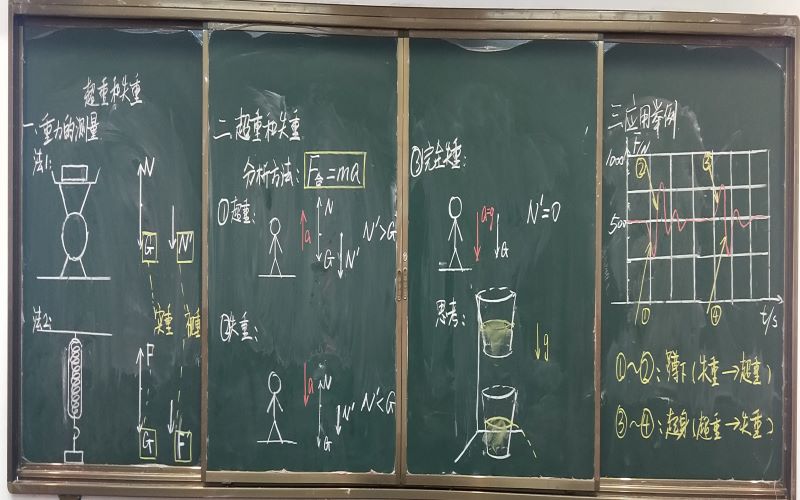 超重和失重
一、重力的测量
法1:
N
G N'
实重 视重
法2:
F
G F'
二、超重和失重
分析方法: F合=ma
①超重:
a N G N' N'>G
②失重:
a N G N' N'<G
③完全失重:
a=g G N'=0
思考:
g
三、应用举例
F/N
1000 ② ③
500
① ④
t/s
①~②: 蹲下(失重→超重)
③~④: 起身(超重→失重)